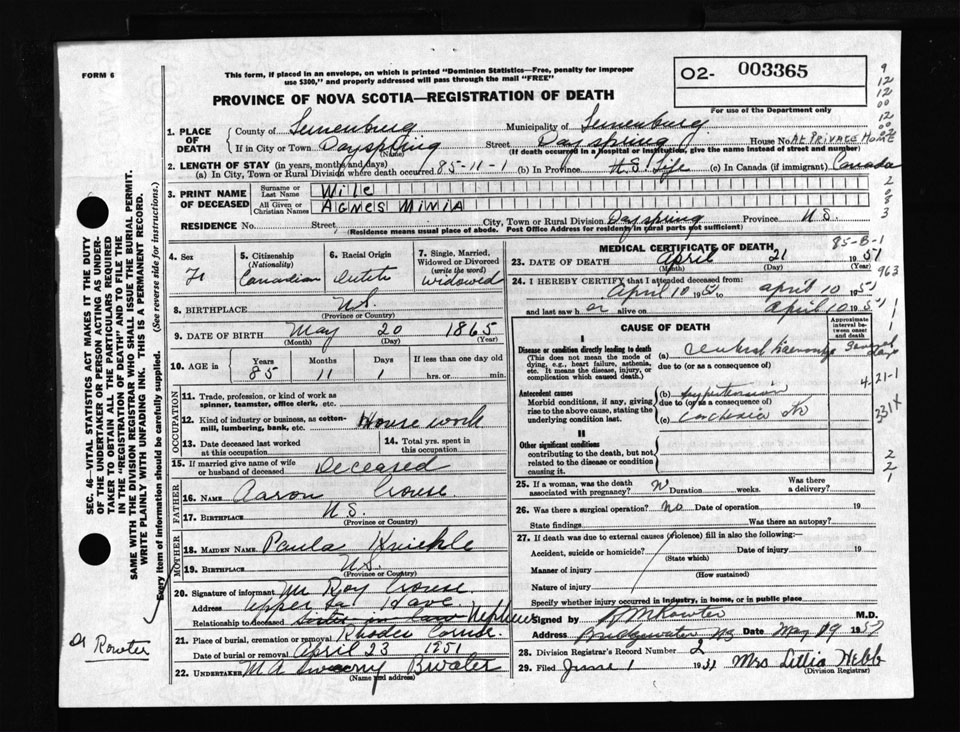 FORM 6
This form, if placed in an envelope, on which is printed "Dominion Statistics—Free, penalty for improper
use $300," and properly addressed will pass through the mail "FREE"
PROVINCE OF NOVA SCOTIA—REGISTRATION OF DEATH
O2- 003365
For use of the Department only
1. PLACE OF DEATH
County of Lunenburg Municipality of Lunenburg
If in City or Town Dayspring (Name) Street Dayspring House No. AT PRIVATE HOME
(If death occurred in a hospital or institution, give name instead of street and number)
2. LENGTH OF STAY (in years, months and days)
(a) In City, Town or Rural Division where death occurred 85-11-1 (b) In Province N.S. Life (c) In Canada (if immigrant) Canada
3. PRINT NAME OF DECEASED
Surname or Last Name Wile
All Given or Christian Names AGNES MINIA
RESIDENCE No. Street City, Town or Rural Division Dayspring Province N.S.
(Residence means usual place of abode. Post Office Address for residents in rural parts not sufficient)
4. Sex F
5. Citizenship (Nationality) Canadian
6. Racial Origin
7. Single, Married, Widowed or Divorced (write the word) Widowed
8. BIRTHPLACE N.S.
(Province or Country)
9. DATE OF BIRTH May 20 1865
(Month) (Day) (Year)
10. AGE in Years 85 Months 11 Days 1 If less than one day old hrs. or min.
OCCUPATION
11. Trade, profession, or kind of work as spinner, teamster, office clerk, etc.
12. Kind of industry or business, as cotton-mill, lumbering, bank, etc. House work
13. Date deceased last worked at this occupation
14. Total yrs. spent in this occupation
15. If married give name of wife or husband of deceased Deceased
FATHER
16. NAME Aaron Crouse
17. BIRTHPLACE N.S.
(Province or Country)
MOTHER
18. MAIDEN NAME Paula
19. BIRTHPLACE N.S.
(Province or Country)
20. Signature of informant Mr Roy Crouse
Address Upper La Have
Relationship to deceased sister in law Nephew
21. Place of burial, cremation or removal Rhodes Corner
Date of burial or removal April 23 1951
22. UNDERTAKER
(Name and address)
MEDICAL CERTIFICATE OF DEATH
85-B-1
23. DATE OF DEATH April 21 1951
(Month) (Day) (Year)
24. I HEREBY CERTIFY that I attended deceased from
April 10 1951 to April 10 1951
and last saw h er alive on April 10 1951
CAUSE OF DEATH
Approximate interval between onset and death
I
Disease or condition directly leading to death
(This does not mean the mode of dying, e.g., heart failure, asthenia, etc. It means the disease, injury, or complication which caused death.)
(a) Cerebral haemorrhage Several days
due to (or as a consequence of)
Antecedent causes
Morbid conditions, if any, giving rise to the above cause, stating the underlying condition last.
(b) hypertension
due to (or as a consequence of)
(c)
II
Other significant conditions
contributing to the death, but not related to the disease or condition causing it.
25. If a woman, was the death associated with pregnancy? N Duration weeks. Was there a delivery?
26. Was there a surgical operation? No Date of operation 19
State findings Was there an autopsy?
27. If death was due to external causes (violence) fill in also the following:
Accident, suicide or homicide? (State which) Date of injury 19
Manner of injury (How sustained)
Nature of injury
Specify whether injury occurred in industry, in home, or in public place
Signed by Rowter M.D.
Address Bridgewater NS Date May 29 1951
28. Division Registrar's Record Number 2
29. Filed June 1 1951 Mrs Lillia Webb
(Division Registrar)
SEC. 46—VITAL STATISTICS ACT MAKES IT THE DUTY
OF THE UNDERTAKER OR PERSON ACTING AS UNDER-
TAKER TO OBTAIN ALL THE PARTICULARS REQUIRED
IN THE "REGISTRATION OF DEATH" AND TO FILE THE
SAME WITH THE DIVISION REGISTRAR WHO SHALL ISSUE THE BURIAL PERMIT.
WRITE PLAINLY WITH UNFADING INK. THIS IS A PERMANENT RECORD.
Every item of information should be carefully supplied. (See reverse side for instructions.)
Dr Rowter
9
12
12
00
12
963
4-21-1
331X
2
2
1